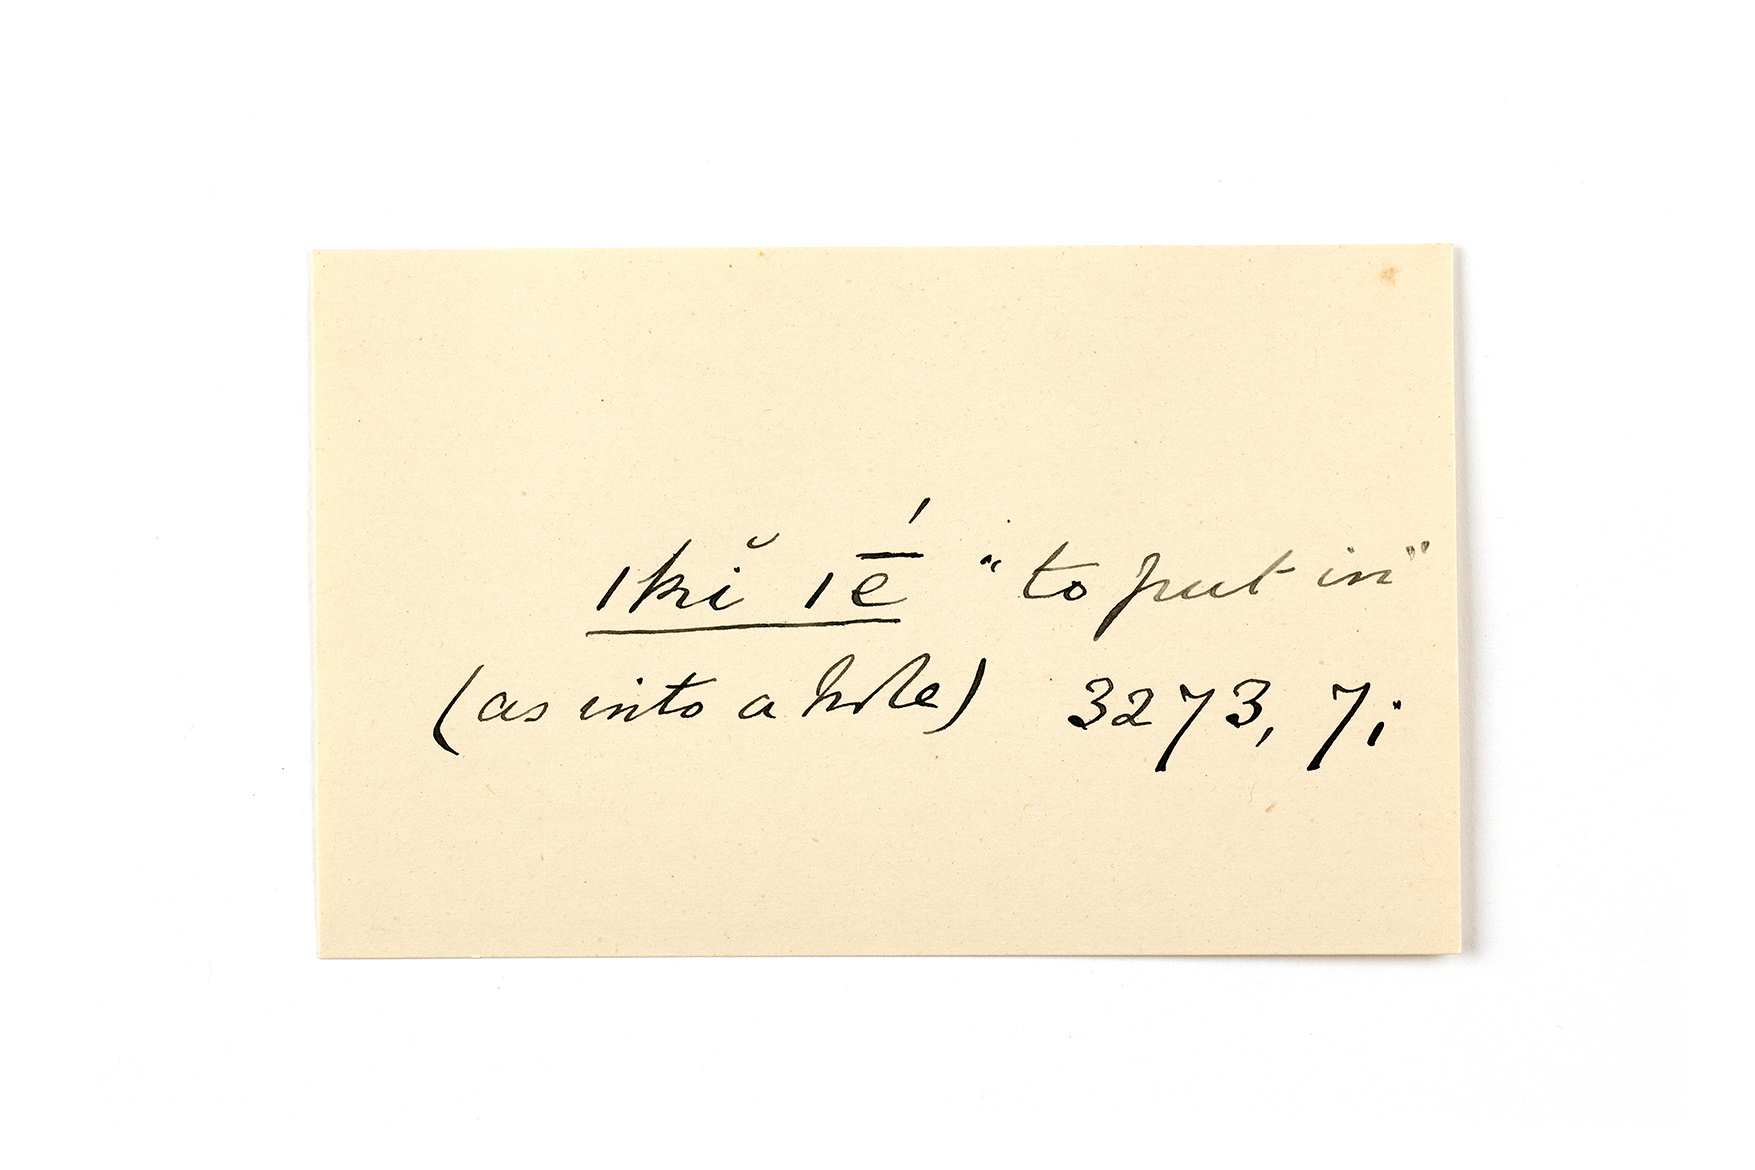 |kĭ |ḗ "to put in"
(as into a hole) 3273, 7;